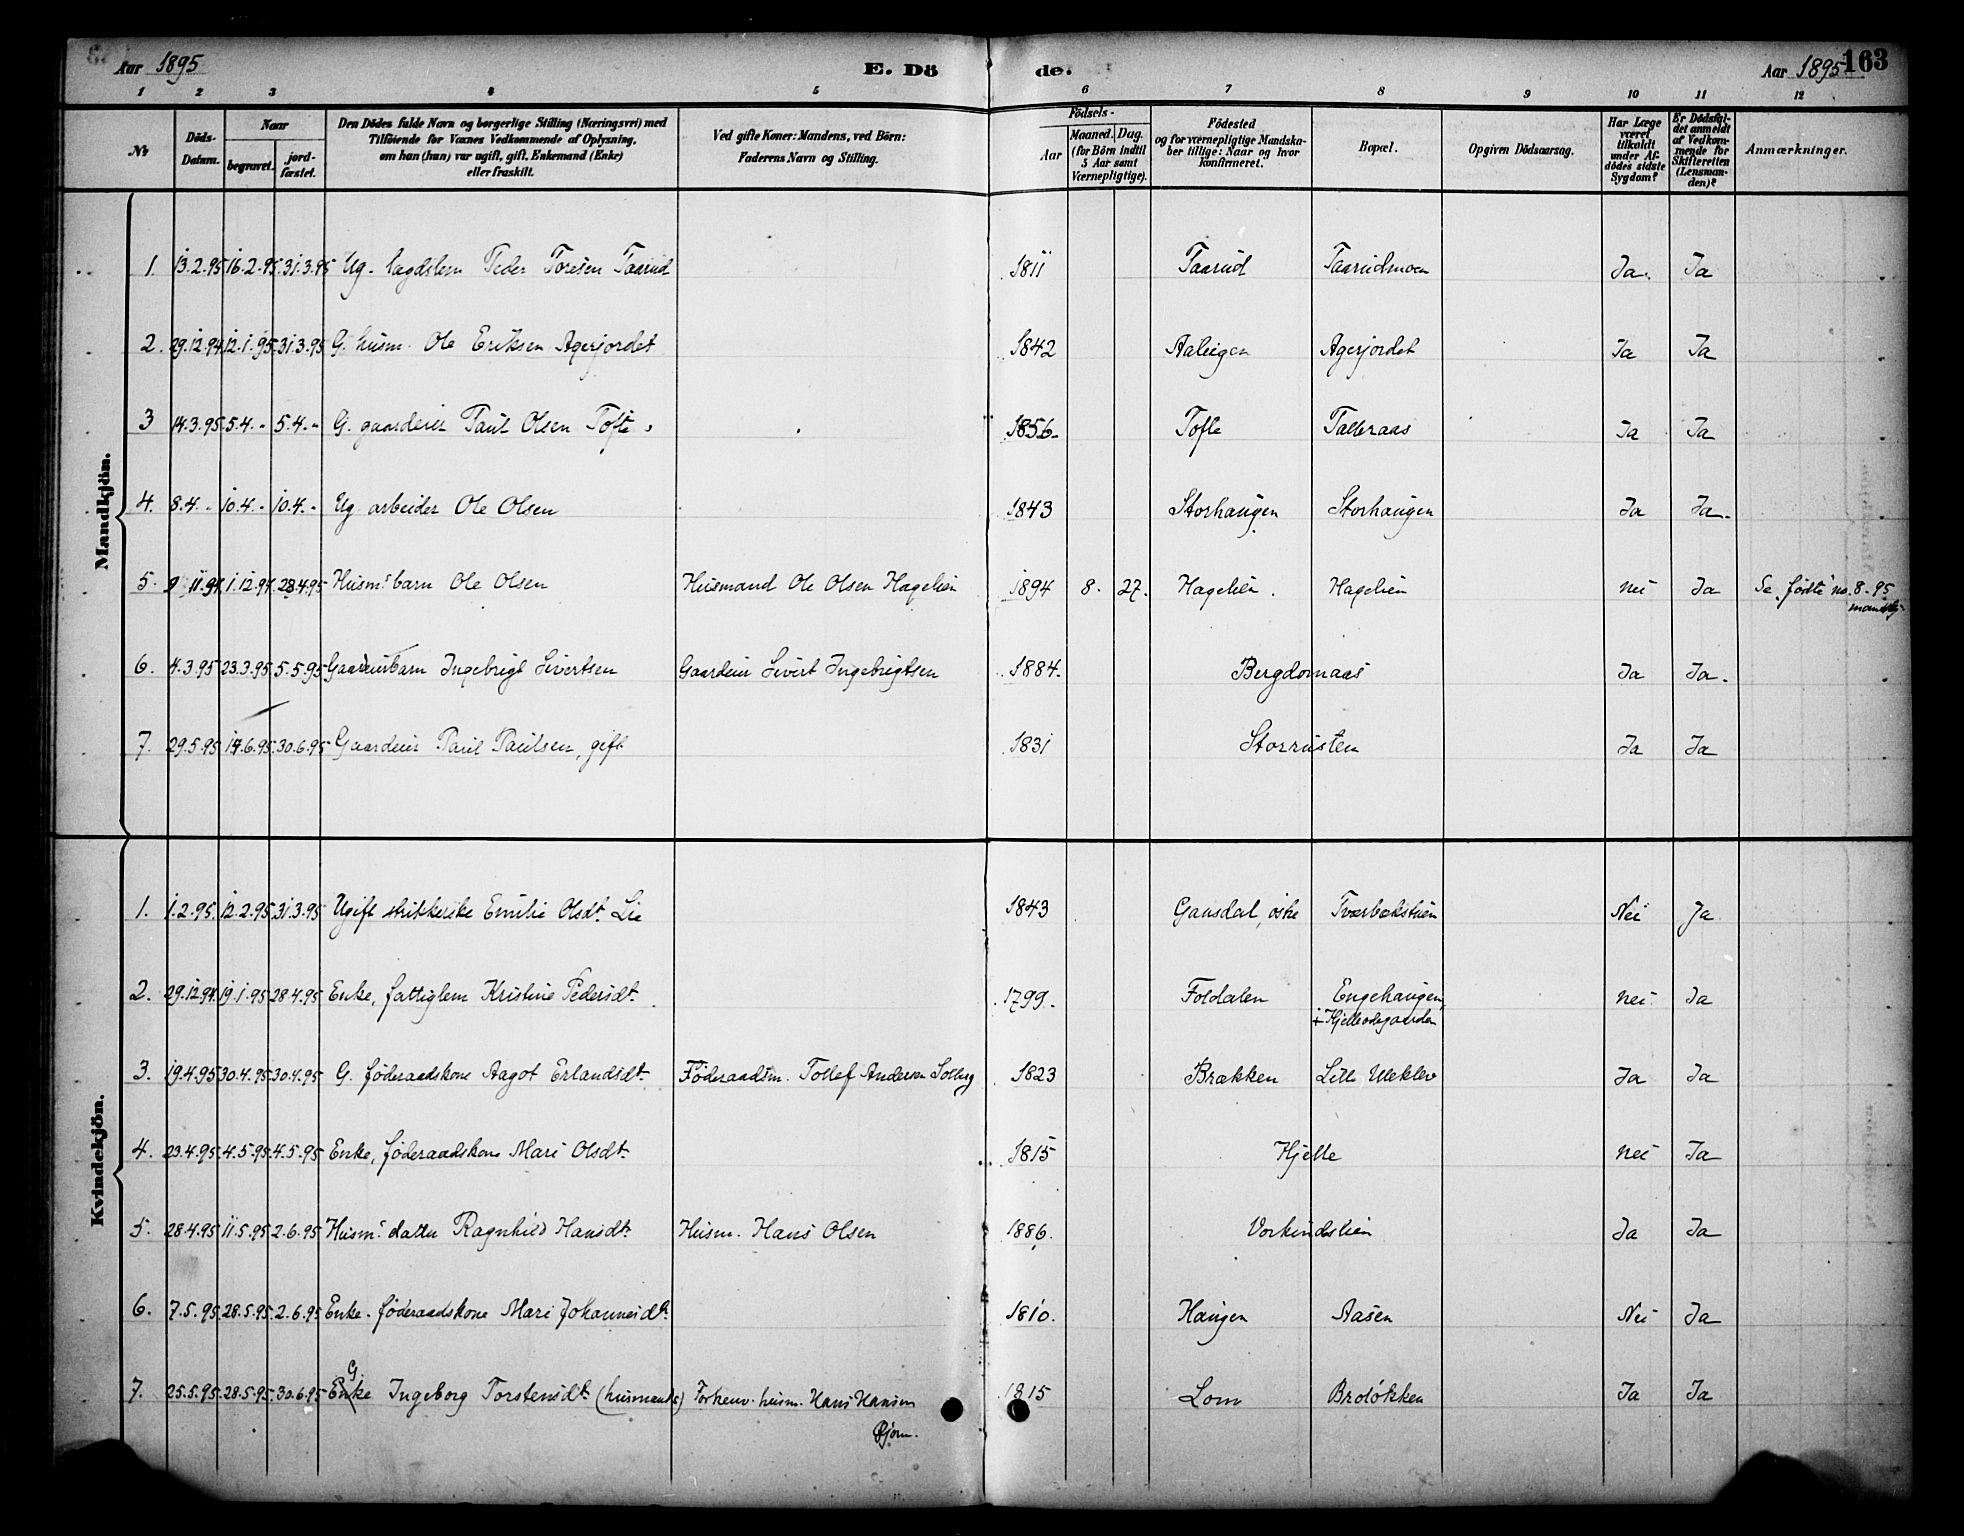 Aar 1895 E. Dö de. Aar 1895 163
1 2 3 4 5 6 7 8 9 10 11 12
No Döds-Datum. Naar begravet. jordfæstet. Den Dödes fulde Navn og borgerlige Stilling (Næringsvei) med Tilföiende for Voxnes Vedkommende af Oplysning, om han (hun) var ugift, gift, Enkemand (Enke) eller fraskilt. Ved gifte Koner: Mandens, ved Börn: Faderens Navn og Stilling. Födsels- Aar Maaned. Dag. (for Börn indtil 5 Aar samt Værnepligtige). Födested og for værnepligtige Mandskaber tillige: Naar og hvor konfirmeret. Bopæl. Opgiven Dödsaarsag. Har Læge været tilkaldt under Afdödes sidste Sygdom? Er Dödsfaldet anmeldt af Vedkommende for Skifteretten (Lensmanden)? Anmærkninger.
Mandkjön.
1. 13.2.95 16.2.95 31.3.95 Ug. lægdslem Peder Toresen Taarud 1811 Taarud Taarudmoen Ja. Ja
2. 29.12.94 12.1.95 31.3.95 G. husm. Ole Eriksen Agerjordet 1842 Agerjordet Ja Ja
3 14.3.95 5.4.- 5.4.- G. gaardeier Paul Olsen Tofte 1856. Tofte Ja Ja
4. 8.4.- 10.4.- 10.4.- Ug. arbeider Ole Olsen 1843 Storhaugen Storhaugen Ja Ja.
5. 11.94 1.12.94 28.4.95 Husm.s barn Ole Olsen Husmand Ole Olsen Hagelien 1894 8. 27. Hagelien. Hagelien Nei Ja Se fødte no. 8. 95
mandkj.
6. 4.3.95 23.3.95 5.5.95 Gaardeierbarn Ingebrigt Sivertsen Gaardeier Sivert Ingebrigtsen 1884. Ja Ja.
7. 29.5.95 14.6.95 30.6.95 Gaardeier Paul Paulsen, gift 1831 Storrusten Ja Ja
Kvindekjön.
1. 1.2.95. 12.2.95 31.3.95 Ugift strikkerske Emilie Olsdt. Lie 1843 Gausdal, østre Nei Ja
2. 29.12.94 19.1.95 28.4.95 Enke, fattiglem Kristine Pedersdt. 1799. Foldalen Engehaugen,
nei Ja
3. 19.4.95 30.4.95 30.4.95 G. føderaadskone Aagot Erlandsdt. Føderaadsm. Tollef Andersen Solberg 1823 Brækken Lille Uleklev Ja Ja
4. 23.4.95 4.5.95 4.5.95 Enke, føderaadskone Mari Olsdt. 1815 Hjelle nei Ja
5. 28.4.95 11.5.95 2.6.95 Husm.s datter Ragnhild Hansdt. Husm. Hans Olsen 1886. Vorkindslien Ja Ja
6. 7.5.95 28.5.95 2.6.95 Enke. føderaadskone Mari Johannesdt. 1810. Haugen Aasen Nei Ja
G.
7. 25.5.95 28.5.95 30.6.95 Enke Ingeborg Torstensdt. (husmands) Forhenv. husm. Hans Hansen 1815 Lom Broløkken Ja Ja
Bjørn.